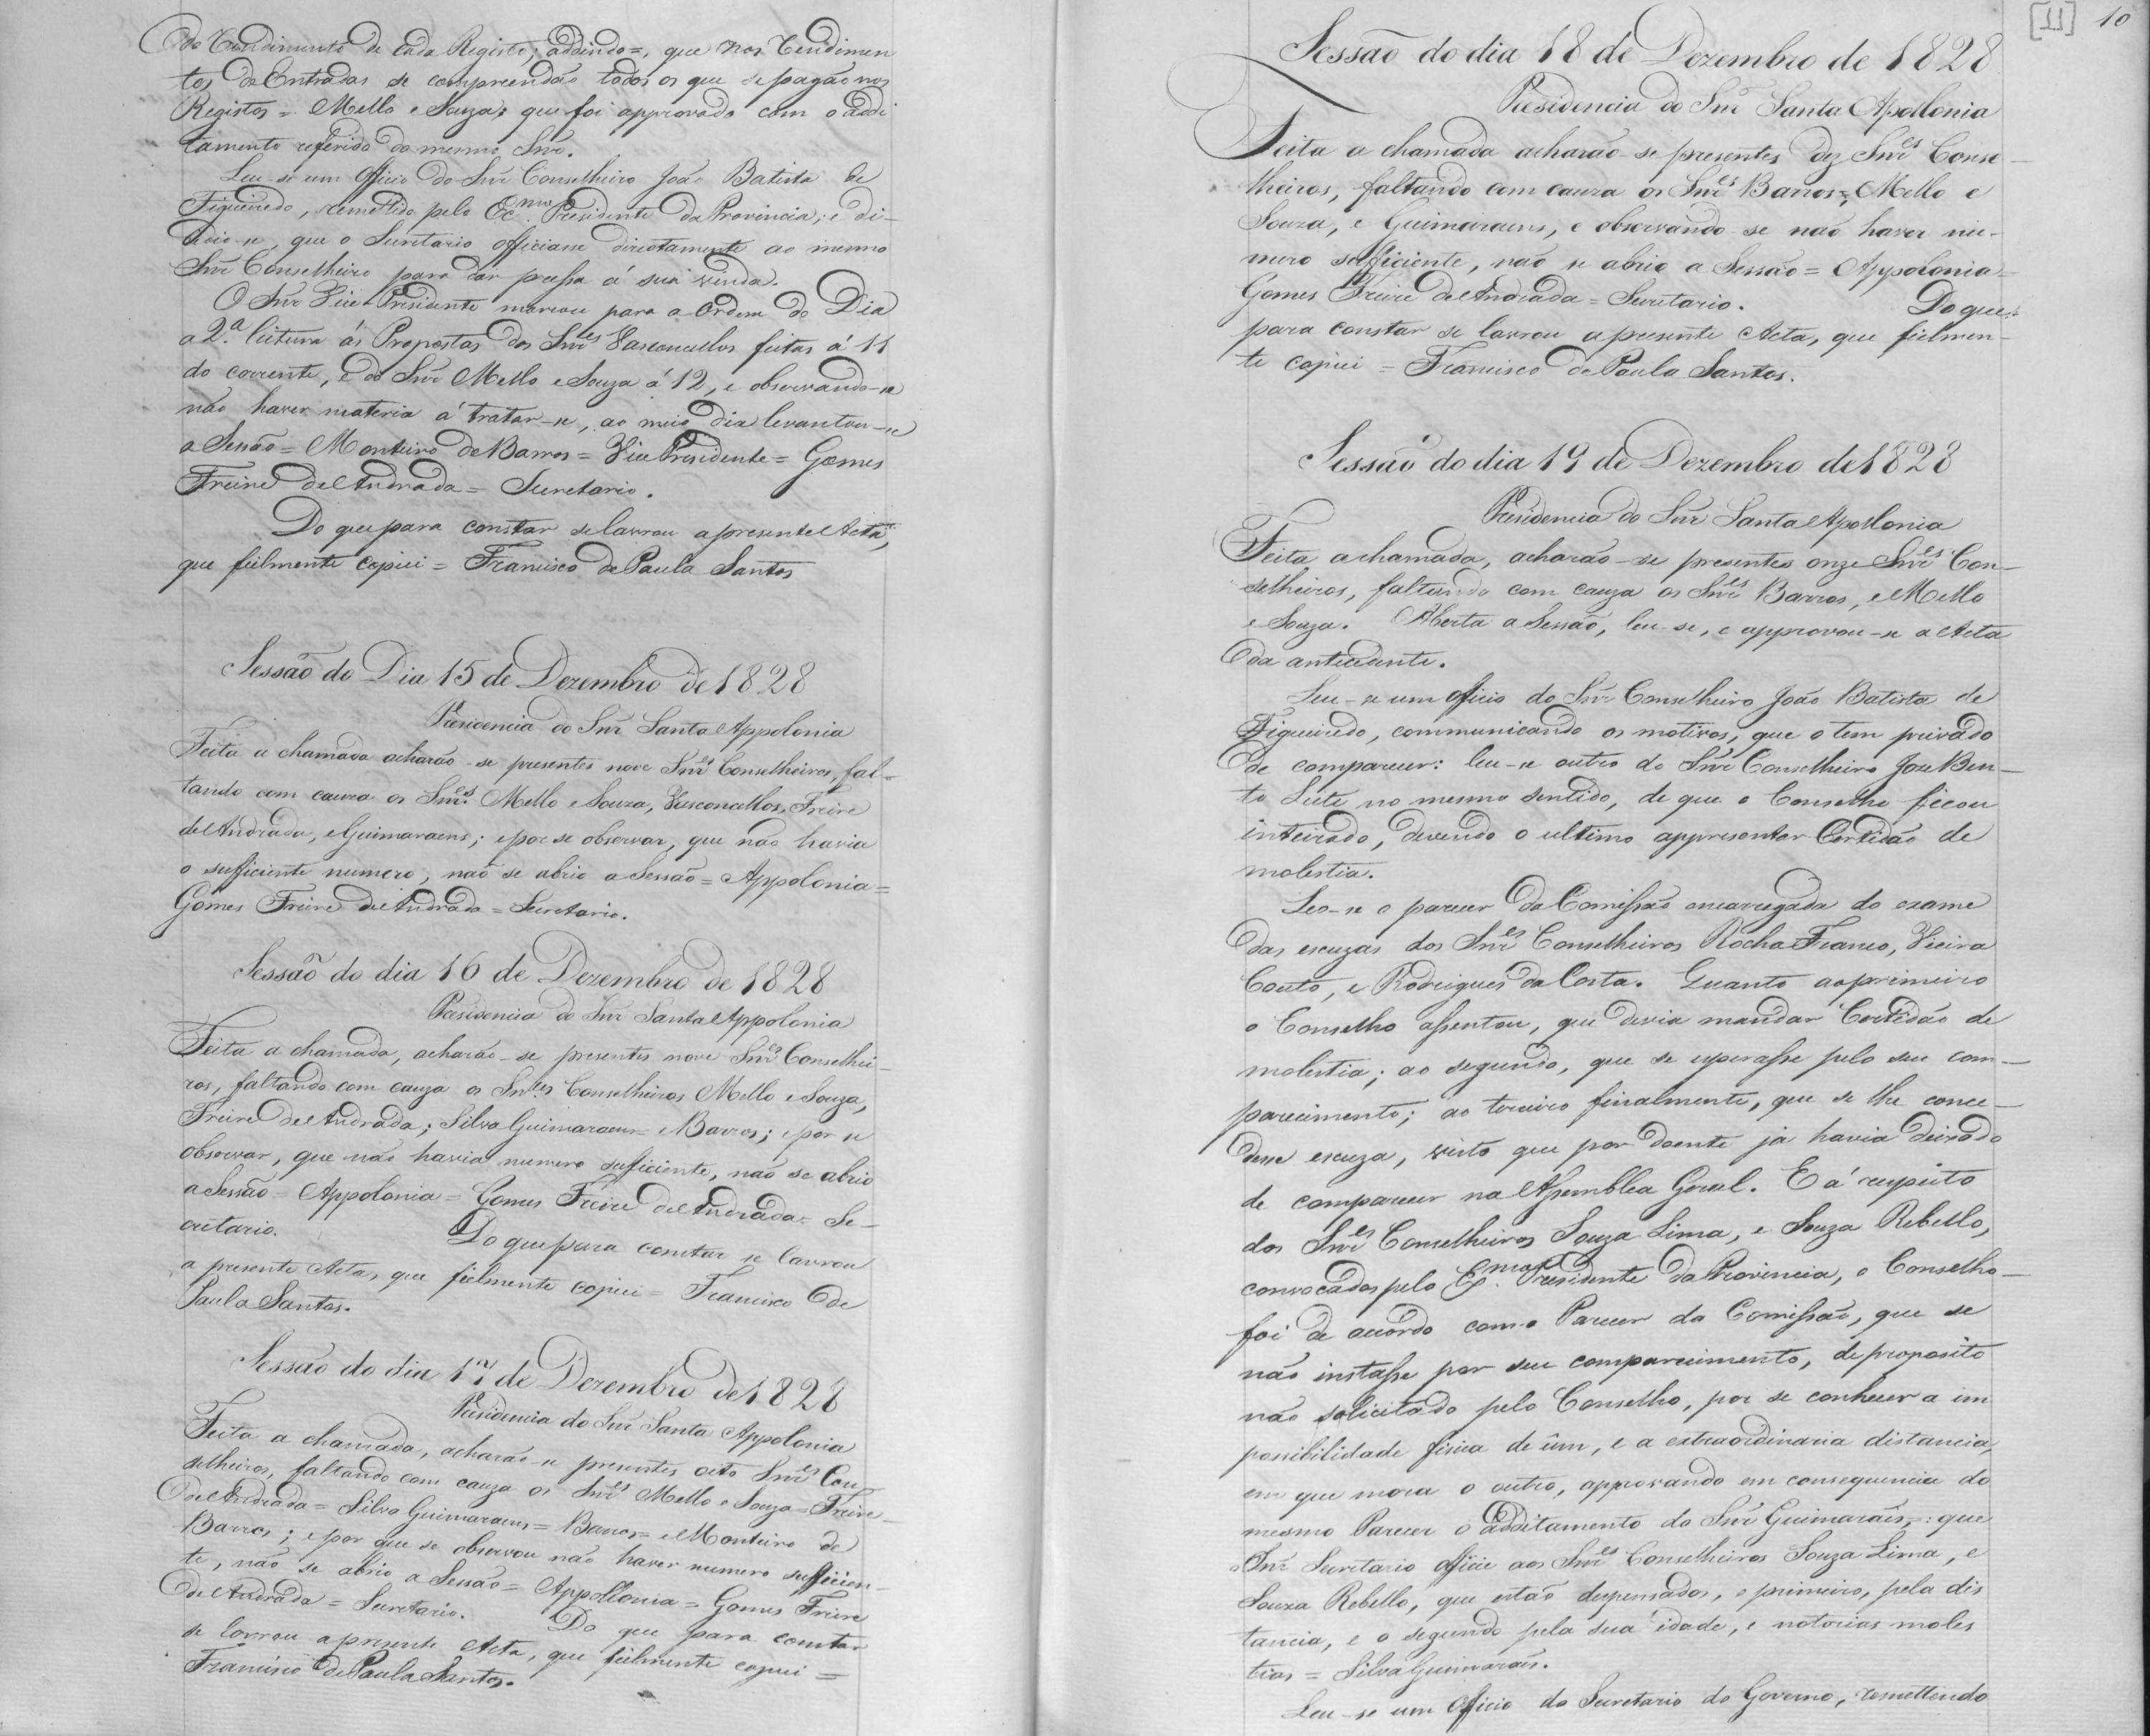 do Rendimento de cada Registo; addindo =, que nos Rendimen
tos de Entradas se comprendão todos os que se pagão nos
Registos = Mello e Souza; que foi approvado com o addi
tamento referido do mesmo Snr̃.
Leu-se um Officio do Snr̃ Conselheiro João Batista de
Figueiredo, remettido pelo Ex.mo Presidente da Provincia; e di-
cidio-se, que o Secretario officiasse directamente ao mesmo
Snr̃ Conselheiro para dar pressa á sua vinda.
O Snr̃ Vice-Presidente marcou para a Ordem do Dia
a 2.ª leitura ás Propostas dos Snr̃es Vasconcellos feitas á 11
do corrente, e do Snr̃ Mello e Souza á 12, e observando-se
não haver materia á tratar-se, ao meio dia levantou-se
a Sessão = Monteiro de Barros = Vice Presidente = Gomes
Freire de Andrada = Secretario.
Do que para constar se lavrou a presente Acta,
que fielmente copiei = Francisco de Paula Santos
Sessão do Dia 15 de Dezembro de 1828
Presidencia do Snr̃ Santa Appolonia
Feita a chamada acharão-se presentes nove Snr̃es Conselheiros, fal-
tando com causa os Snr̃es Mello e Souza, Vasconcellos, Freire
de Andrada, e Guimaraens; e por se observar, que não havia
o sufficiente numero, não se abrio a Sessão = Appolonia =
Gomes Freire de Andrada = Secretario.
Sessão do dia 16 de Dezembro de 1828
Presidencia do Snr̃ Santa Appolonia
Feita a chamada, acharão-se presentes nove Snr̃es Conselhei-
ros, faltando com cauza os Snr.es Conselheiros Mello e Souza,
Freire de Andrada; Silva Guimaraens = e Barros; e por se
observar, que não havia numero sufficiente, não se abrio
a Sessão = Appolonia = Gomes Freire de Andrada = Se-
cretario. Do que para constar se lavrou
a presente Acta, que fielmente copiei = Francisco de
Paula Santos.
Sessão do dia 17 de Dezembro de 1828
Presidencia do Snr̃ Santa Appolonia
Feita a chamada, acharão-se presentes oito Snr̃es Con-
selheiros, faltando com cauza os Snr̃es Mello e Souza = Freire
de Andrada = Silva Guimaraens = Barros = e Monteiro de
Barros; e por que se observou não haver numero sufficien-
te, não se abrio a Sessão = Appollonia = Gomes Freire
de Andrada = Secretario. Do que para constar
se lavrou a presente Acta, que fielmente copiei =
Francisco de Paula Santos.
[11] 10
Sessão do dia 18 de Dezembro de 1828
Presidencia do Snr̃ Santa Apollonia
Feita a chamada acharão-se presentes dez Snr̃es Conse-
lheiros, faltando com cauza os Snr̃es Barros =, Mello e
Souza, e Guimaraens, e observando-se não haver nu-
mero sufficiente, não se abrio a Sessão = Appolonia =
Gomes Freire de Andrada = Secretario. Do que
para constar se lavrou a presente Acta, que fielmen-
te copiei = Francisco de Paula Santos.
Sessão do dia 19 de Dezembro de 1828
Presidencia do Snr̃ Santa Apollonia
Feita a chamada, acharão-se presentes onze Snr̃es Con-
selheiros, faltando com cauza os Snr̃es Barros, e Mello
e Souza. Aberta a Sessão, leu-se, e approvou-se a Acta
da antecedente.
Leu-se um officio do Snr̃ Conselheiro João Batista de
Figueiredo, communicando os motivos, que o tem privado
de comparecer: leu-se outro do Snr̃ Conselheiro Joze Ben-
to Leite no mesmo sentido, de que o Conselho ficou
inteirado, devendo o ultimo appresentar Certidão de
molestia.
Leo-se o parecer da Comissão encarregada do exame
das escuzas dos Snr̃es Conselheiros Rocha Franco, Vieira
Couto, e Rodrigues da Costa. Quanto ao primeiro
o Conselho assentou, que devia mandar Certidão de
molestia; ao segundo, que se esperasse pelo seu com-
parecimento; ao terceiro finalmente, que se lhe conce-
desse escuza, visto que por doente já havia deixado
de comparecer na Assemblea Geral. E á respeito
dos Snr̃es Conselheiros Souza Lima, e Souza Rebello,
convocados pelo Ex.mo Presidente da Provincia, o Conselho
foi de acordo com o Parecer da Comissão, que se
não instasse por seu comparecimento, de proposito
não solicitado pelo Conselho, por se conhecer a im
possibilidade fisica de um, e a extraordinaria distancia,
em que mora o outro, approvando em consequencia do
mesmo Parecer o additamento do Snr̃ Guimarães =: que
o Snr̃ Secretario officie aos Snr̃es Conselheiros Souza Lima, e
Souza Rebello, que estão despensados, o primeiro, pela dis
tancia, e o segundo pela sua idade, e notorias moles
tias = Silva Guimarães.
Leu-se um Officio do Secretario do Governo, remettendo